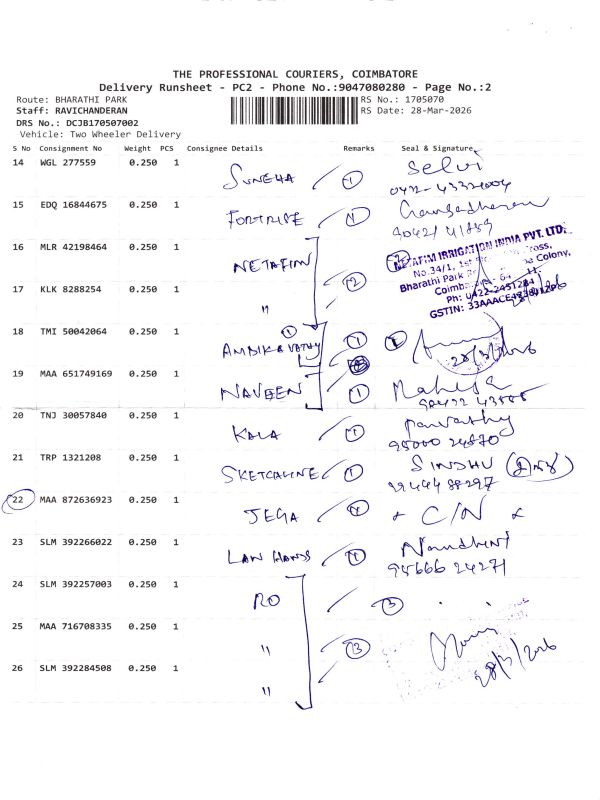 THE PROFESSIONAL COURIERS, COIMBATORE
Delivery Runsheet - PC2 - Phone No.:9047080280 - Page No.:2
Route: BHARATHI PARK RS No.: 1705070
Staff: RAVICHANDERAN RS Date: 28-Mar-2026
DRS No.: DCJB170507002
Vehicle: Two Wheeler Delivery
S No Consignment No Weight PCS Consignee Details Remarks Seal & Signature
14 WGL 277559 0.250 1 SUNEHA 1 Selvi
15 EDQ 16844675 0.250 1
16 MLR 42198464 0.250 1 NETAFIM
NETAFIM IRRIGATION INDIA PVT. LTD.
No.34/1, 1st Cross,
Bharathi Park Colony,
17 KLK 8288254 0.250 1 " 2
Ph: 0422-2451284
18 TMI 50042064 0.250 1 1
28/3/2026
19 MAA 651749169 0.250 1 NAVEEN 1
20 TNJ 30057840 0.250 1 KALA 1 Parvathy
21 TRP 1321208 0.250 1 1 SINDHU
22 MAA 872636923 0.250 1 JEGA 1 C/N
23 SLM 392266022 0.250 1 1 Nandhini
95666 24271
24 SLM 392257003 0.250 1 RO 3
25 MAA 716708335 0.250 1 " 3
28/3/2026
26 SLM 392284508 0.250 1 "